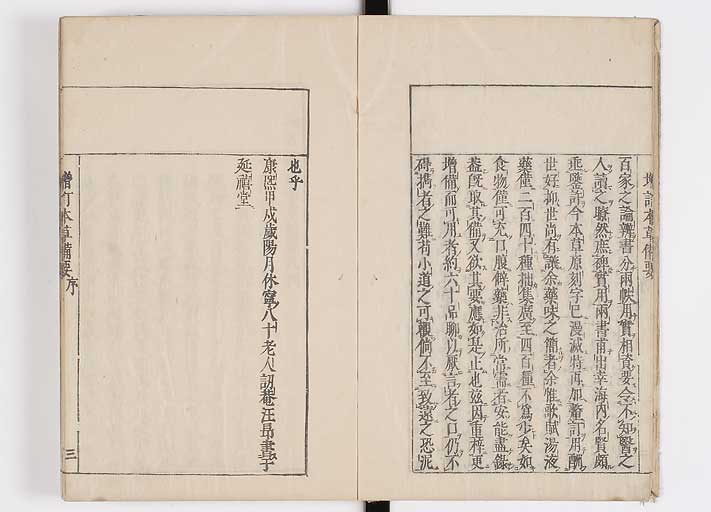 增訂本草備要
百家之論辨書分兩帙用實相資要令不知醫之
人讀之瞭然庶裨實用兩書甫出幸海內名賢頗
垂鑒許今本草原刻字已漫滅特再加釐訂用酬
世好抑世尚有議余藥味之簡者余惟歌賦湯液
藥僅二百四十種拙集廣至四百種不為少矣如
食物僅可充口腹僻藥非治所常需者安能盡錄
蓋既取其備又欲其要應如是止也茲因重梓更
增備而可用者約六十品聊以厭言者之口仍不
碍攜者之難苟小道之可觀倘不至致遠之恐泥
也乎
康熙甲戌歲陽月休寧八十老人訒菴汪昂書于
延禧堂
增訂本草備要 序 三